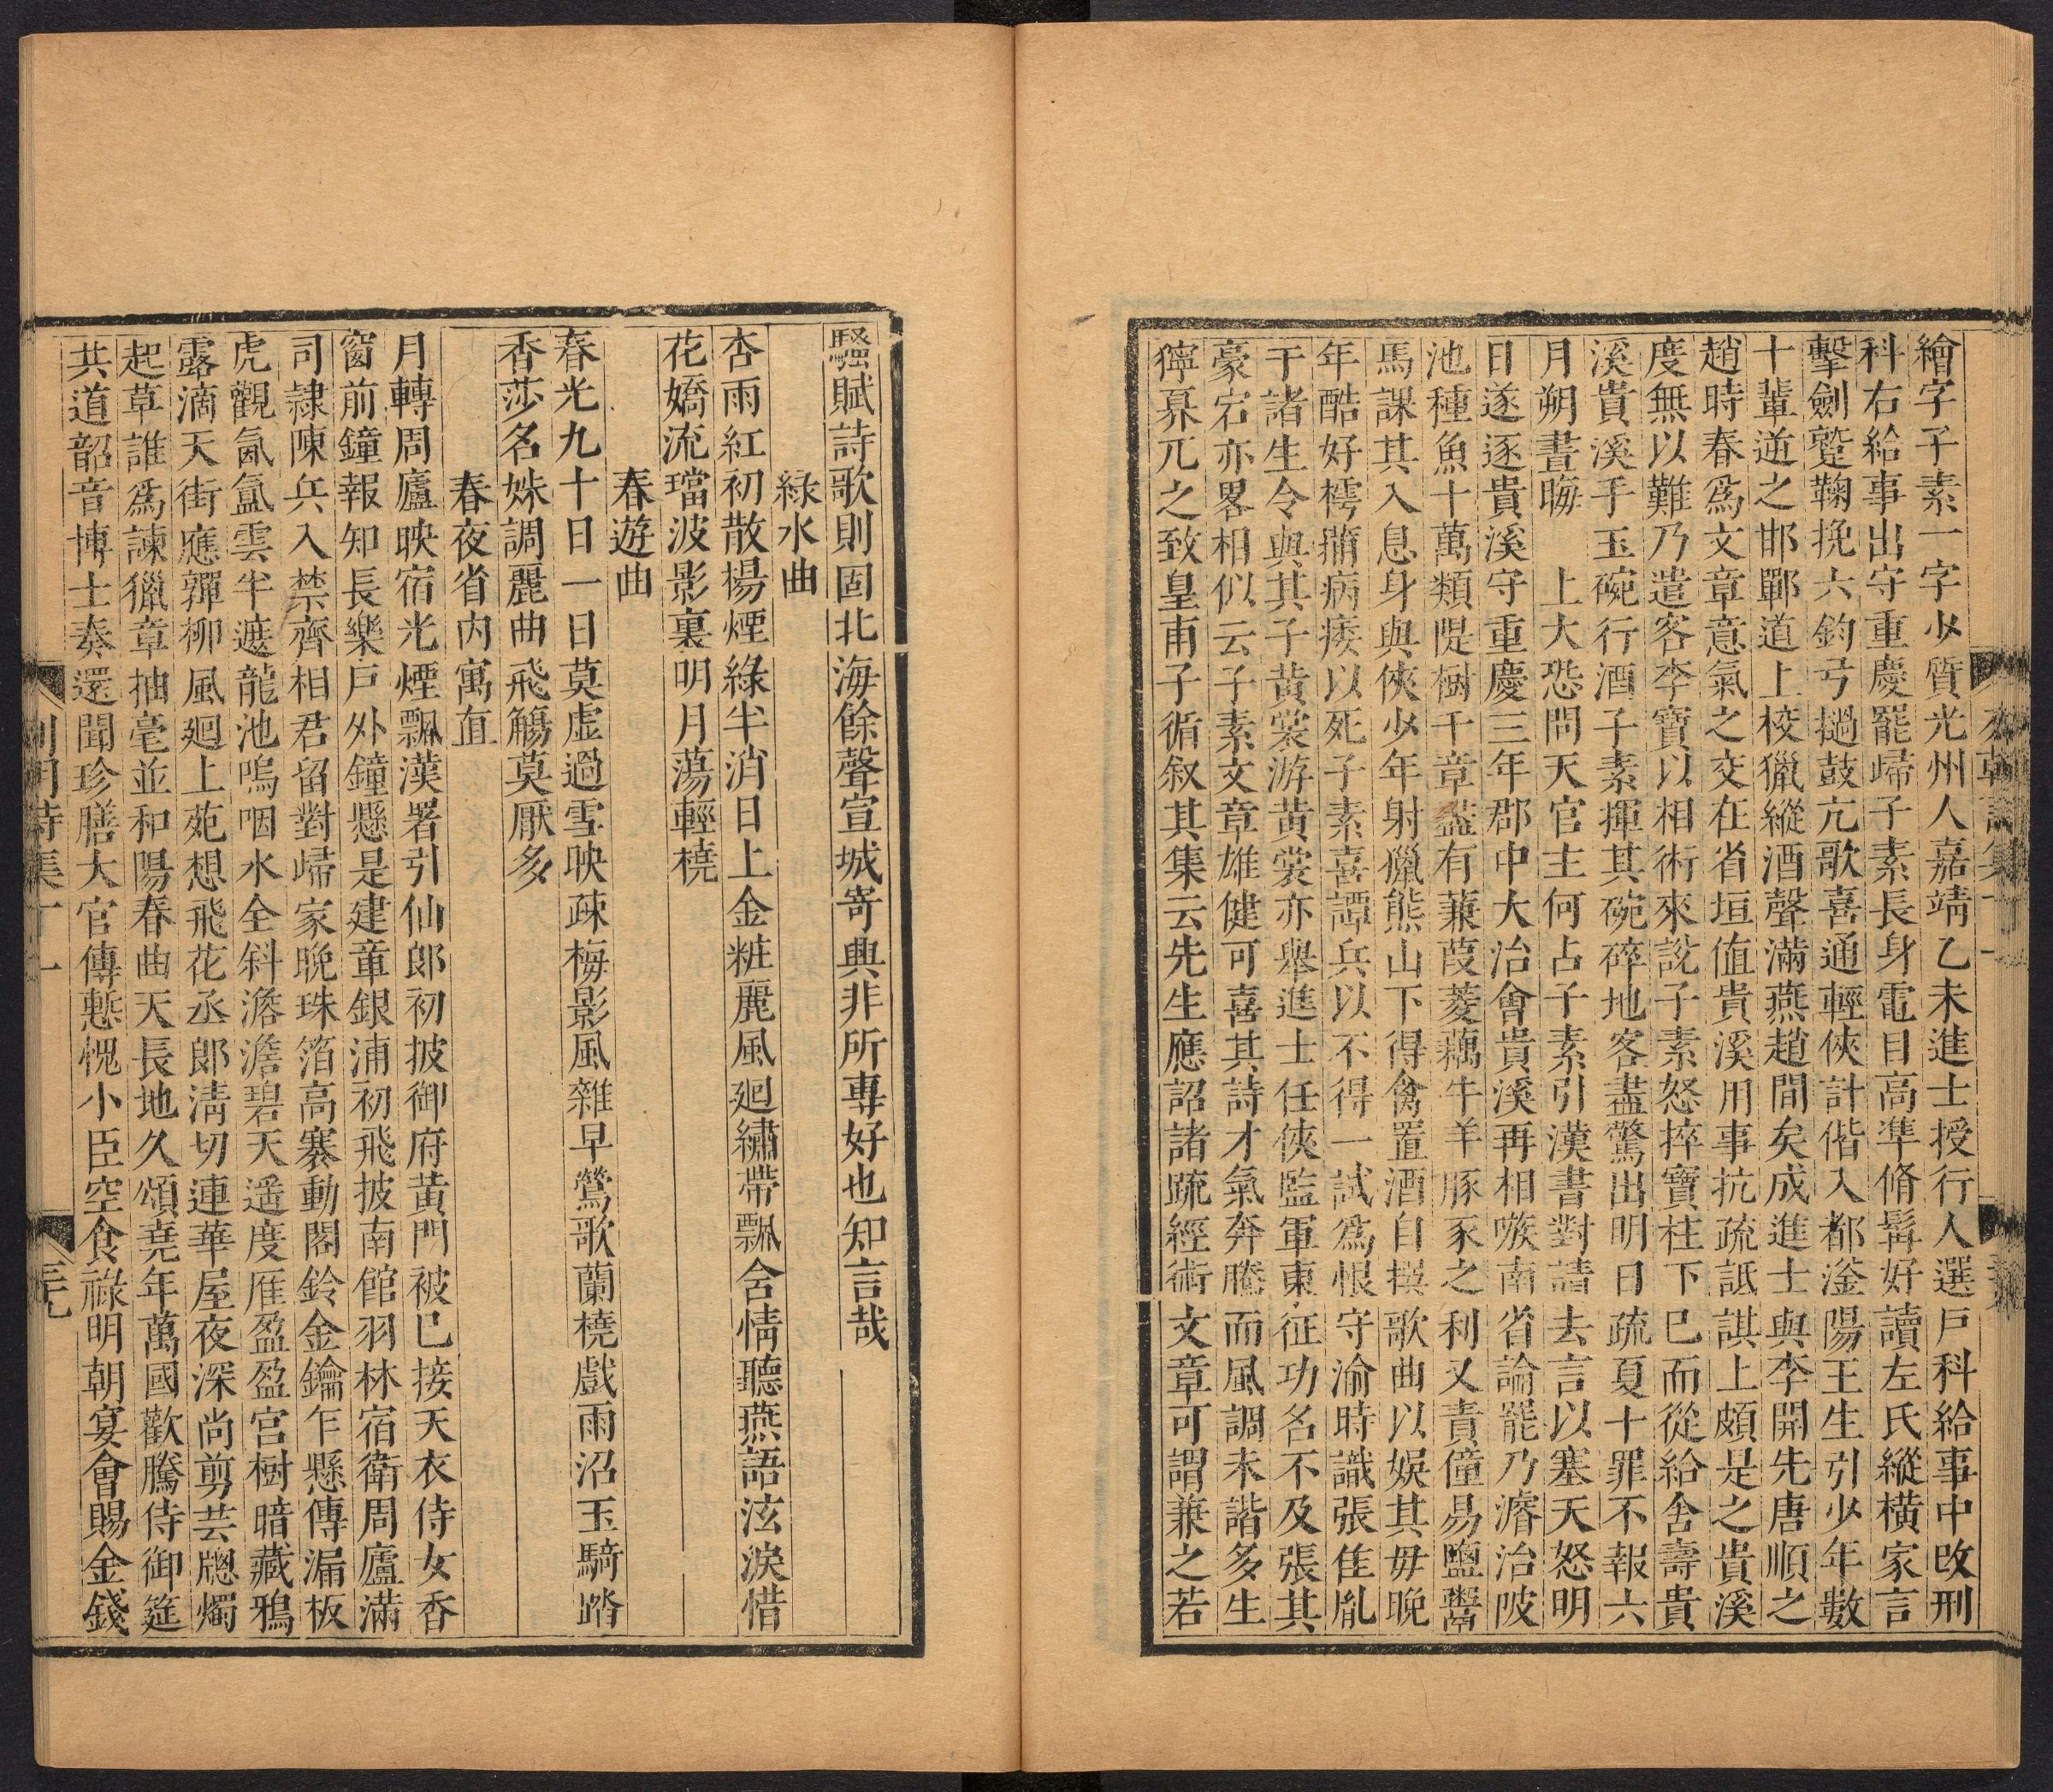 繪字子素一字少質光州人嘉靖乙未進士授行人選戶科給事中改刑
科右給事出守重慶罷歸子素長身電目高準脩髯好讀左氏縱橫家言
擊劍蹵鞠挽六鈞弓撾鼓亢歌喜通輕俠計偕入都滏陽王生引少年數
十輩逆之邯鄲道上校獵縱酒聲滿燕趙間矣成進士與李開先唐順之
趙時春爲文章意氣之交在省垣值貴溪用事抗疏詆諆上頗是之貴溪
度無以難乃遣客李寶以相術來說子素怒捽寶柱下巳而從給舍壽貴
溪貴溪手玉碗行酒子素揮其碗碎地客盡驚出明日疏夏十罪不報六
月朔晝晦 上大恐問天官主何占子素引漢書對請去言以塞天怒明
日遂逐貴溪守重慶三年郡中大治會貴溪再相嗾南省論罷乃濬治陂
池種魚十萬類隄樹千章益有蒹葭菱藕牛羊豚豕之利又責僮易鹽鬻
馬課其入息身與俠少年射獵熊山下得禽置酒自撰歌曲以娛其母晚
年酷好樗蒱病痿以死子素喜譚兵以不得一試爲恨守渝時識張佳胤
于諸生令與其子黃裳游黃裳亦舉進士任俠監軍東征功名不及張其
豪宕亦畧相似云子素文章雄健可喜其詩才氣奔騰而風調未諧多生
獰奡兀之致皇甫子循叙其集云先生應詔諸疏經術文章可謂兼之若
騷賦詩歌則固北海餘聲宣城寄興非所專好也知言哉
綠水曲
杏雨紅初散楊煙綠半消日上金粧麗風廻繡帶飄含情聽燕語泫淚惜
花嬌流璫波影裏明月蕩輕橈
春遊曲
春光九十日一日莫虛過雪映疎梅影風雜早鶯歌蘭橈戲雨沼玉騎踏
香莎名姝調麗曲飛觴莫厭多
春夜省内寓直
月轉周廬映宿光煙飄漢署引仙郎初披御府黃門被已接天衣侍女香
窗前鐘報知長樂戶外鐘懸是建章銀浦初飛披南館羽林宿衛周廬滿
司隷陳兵入禁齊相君留對歸家晚珠箔高褰動閣鈴金鑰乍懸傳漏板
虎觀氤氳雲半遮龍池嗚咽水全斜澹澹碧天遥度雁盈盈宮樹暗藏鴉
露滴天街應嚲柳風廻上苑想飛花丞郎清切連華屋夜深尚剪芸牕燭
起草誰爲諫獵章抽毫並和陽春曲天長地久頌堯年萬國歡騰侍御筵
共道韶音博士奏還聞珍膳大官傳慙愧小臣空食祿明朝宴會賜金錢
列朝詩集丁一
三九